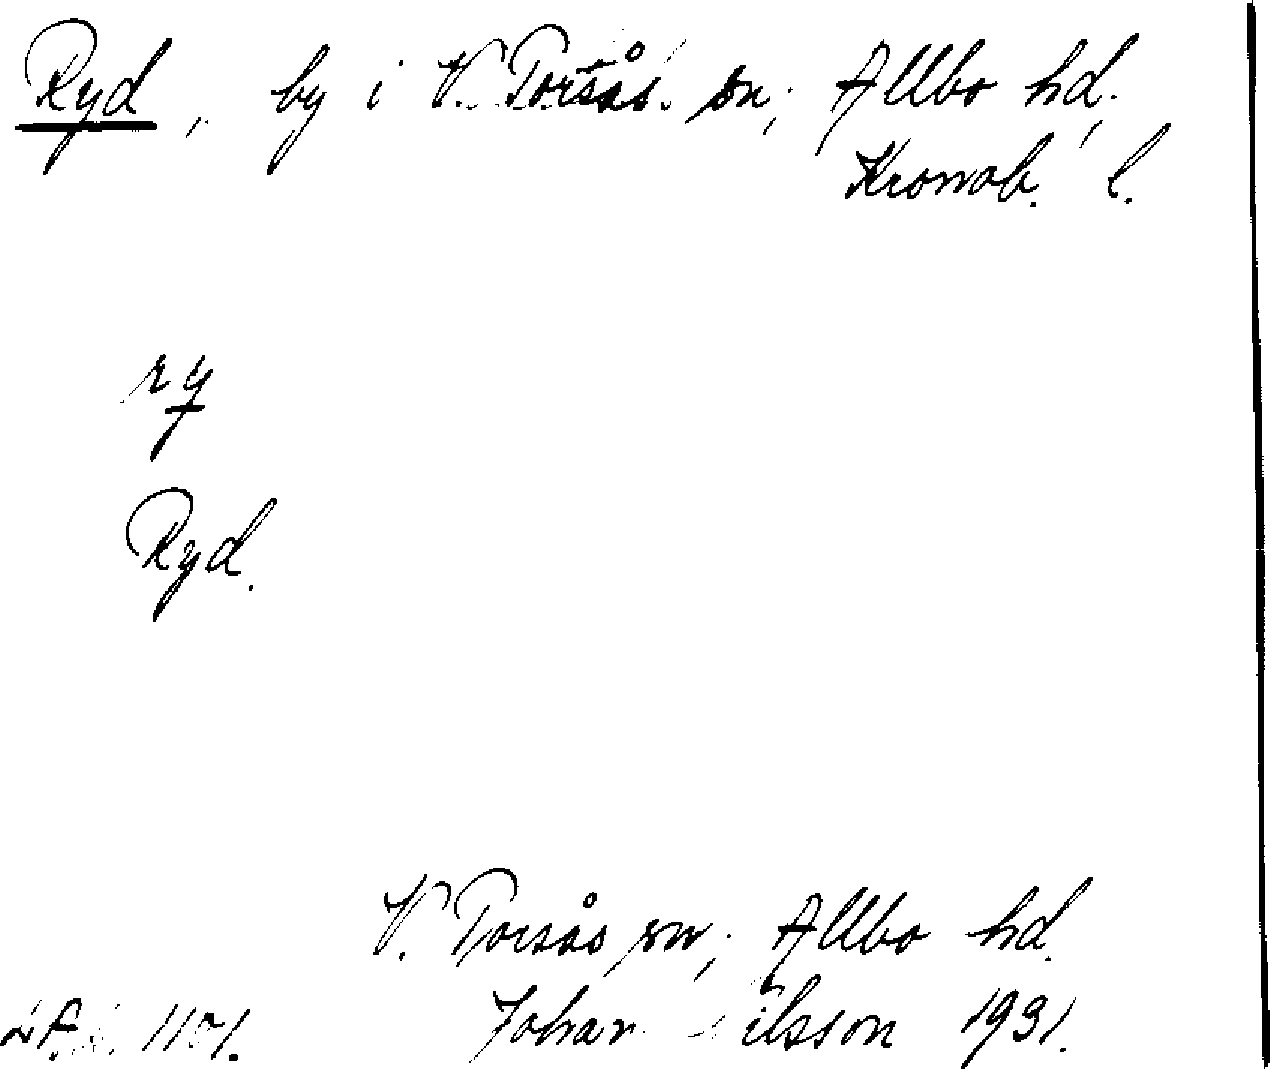 Ryd, by i V. Torsås sn, Allbo hd,
Kronob. l.
ry
Ryd.
V. Torsås sn, Allbo hd.
Johan Nilsson 1931.
1101.